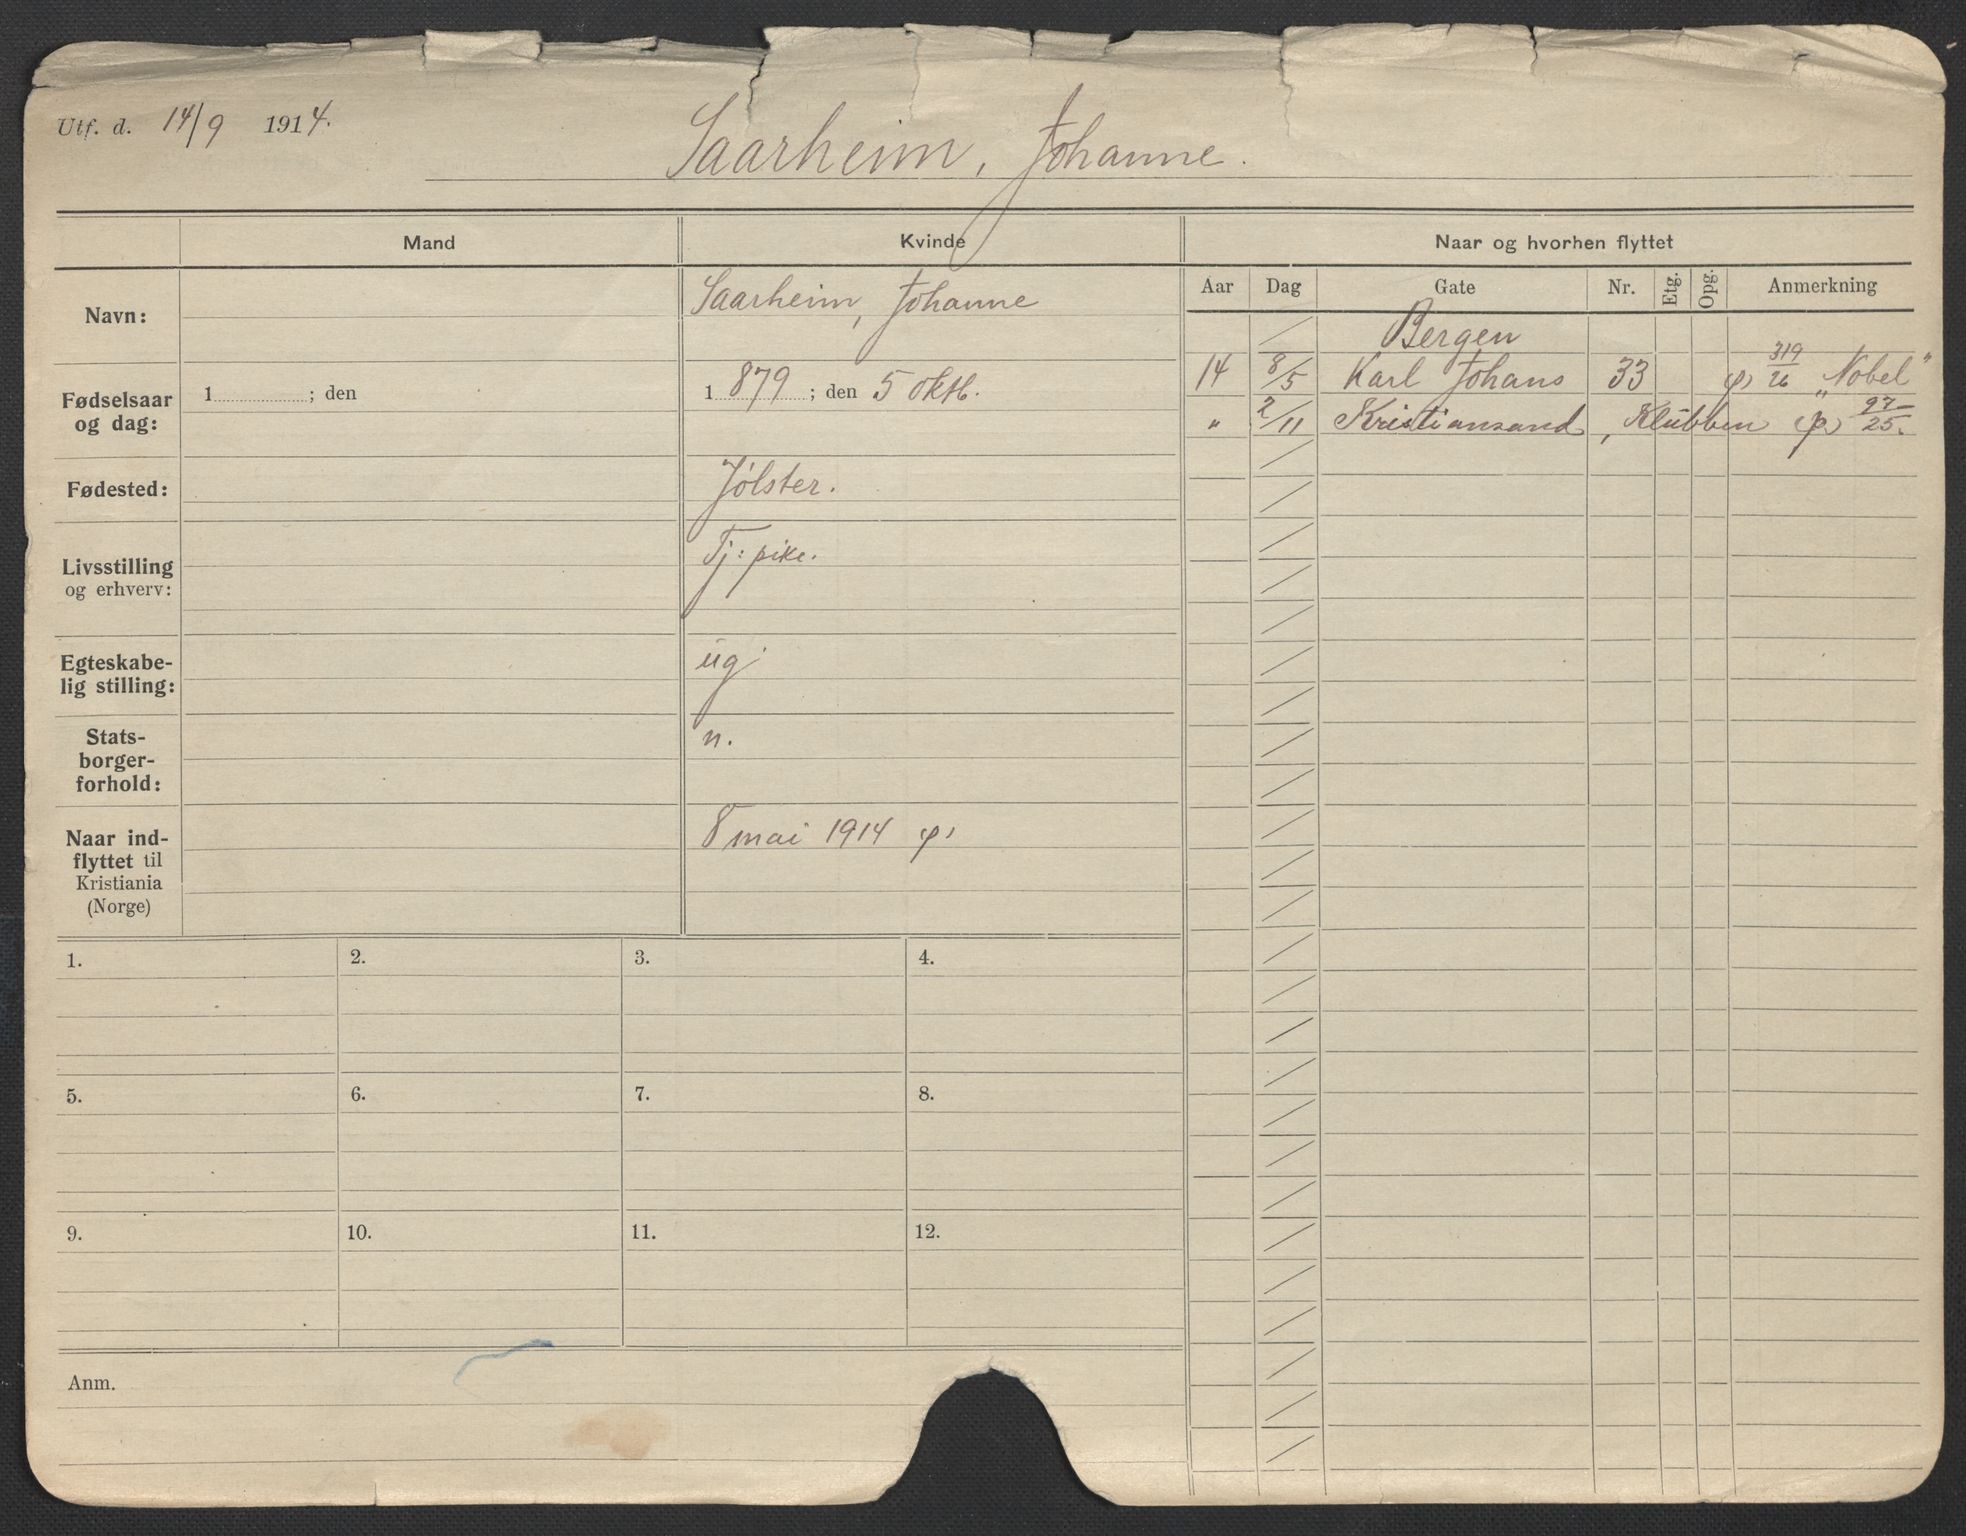 Utf. d. 14/9 1914.
Saarheim, Johanne.
Mand Kvinde Naar og hvorhen flyttet
Aar Dag Gate Nr. Etg. Opg. Anmerkning
Navn:
Saarheim, Johanne
Fødselsaar
og dag:
1 ; den
1 879 ; den 5 oktb.
Fødested:
Jølster.
Livsstilling
og erhverv:
Tj: pike.
Egteskabe-
lig stilling:
ug
Stats-
borger-
forhold:
n.
Naar ind-
flyttet til
Kristiania
(Norge)
8 mai 1914
Bergen
14 8/5 Karl Johans 33 319/26 „Nobel"
" 2/11 Kristiansand, Klubben 97/25.
1. 2. 3. 4.
5. 6. 7. 8.
9. 10. 11. 12.
Anm.